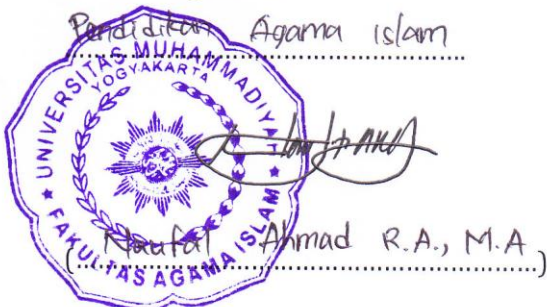 Pendidikan Agama islam
UNIVERSITAS MUHAMMADIYAH
YOGYAKARTA
FAKULTAS AGAMA ISLAM
(Naufal Ahmad R.A., M.A)